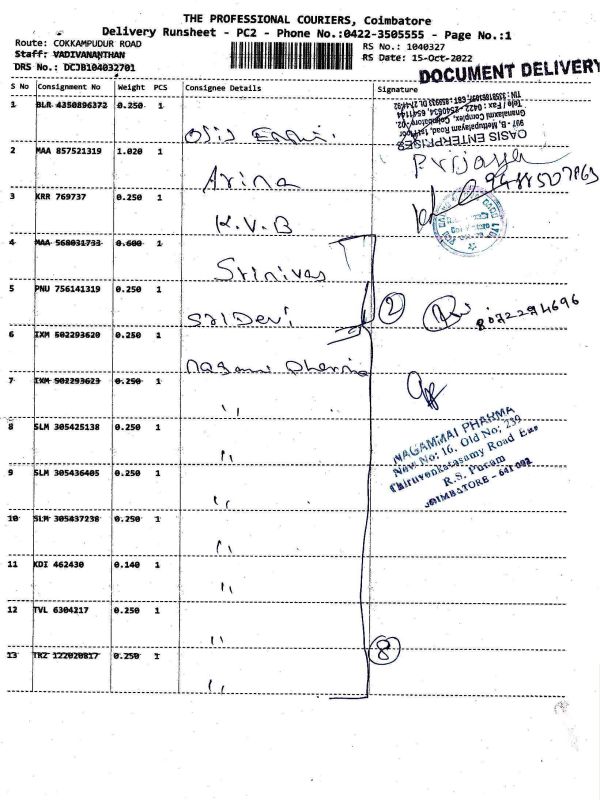 THE PROFESSIONAL COURIERS, Coimbatore
Delivery Runsheet - PC2 - Phone No.:0422-3505555 - Page No.:1
Route: COKKAMPUDUR ROAD
RS No.: 1040327
Staff: VADIVANANTHAN
RS Date: 15-Oct-2022
DRS No.: DCJB104032701
DOCUMENT DELIVERY
S No Consignment No Weight PCS Consignee Details Signature
1 BLR 4350896372 0.250 1
OASIS ENTERPRISES
2 MAA 857521319 1.020 1 Arina
3 KRR 769737 0.250 1 K.V.B
4 MAA 568031733 0.600 1 Srinivas
5 PNU 756141319 0.250 1 Sri Devi
2
6 IXM 502293620 0.250 1
7 IXM 502293623 0.250 1 "
8 SLM 305425138 0.250 1 "
NAGAMMAI PHARMA
New No: 16, Old No; 239
Thiruvenkatasamy Road East
R.S. Puram
COIMBATORE - 641 002
9 SLM 305436405 0.250 1 "
10 SLM 305437238 0.250 1 "
11 KDI 462430 0.140 1 "
12 TVL 6304217 0.250 1 "
8
13 TRZ 122020817 0.250 1 "